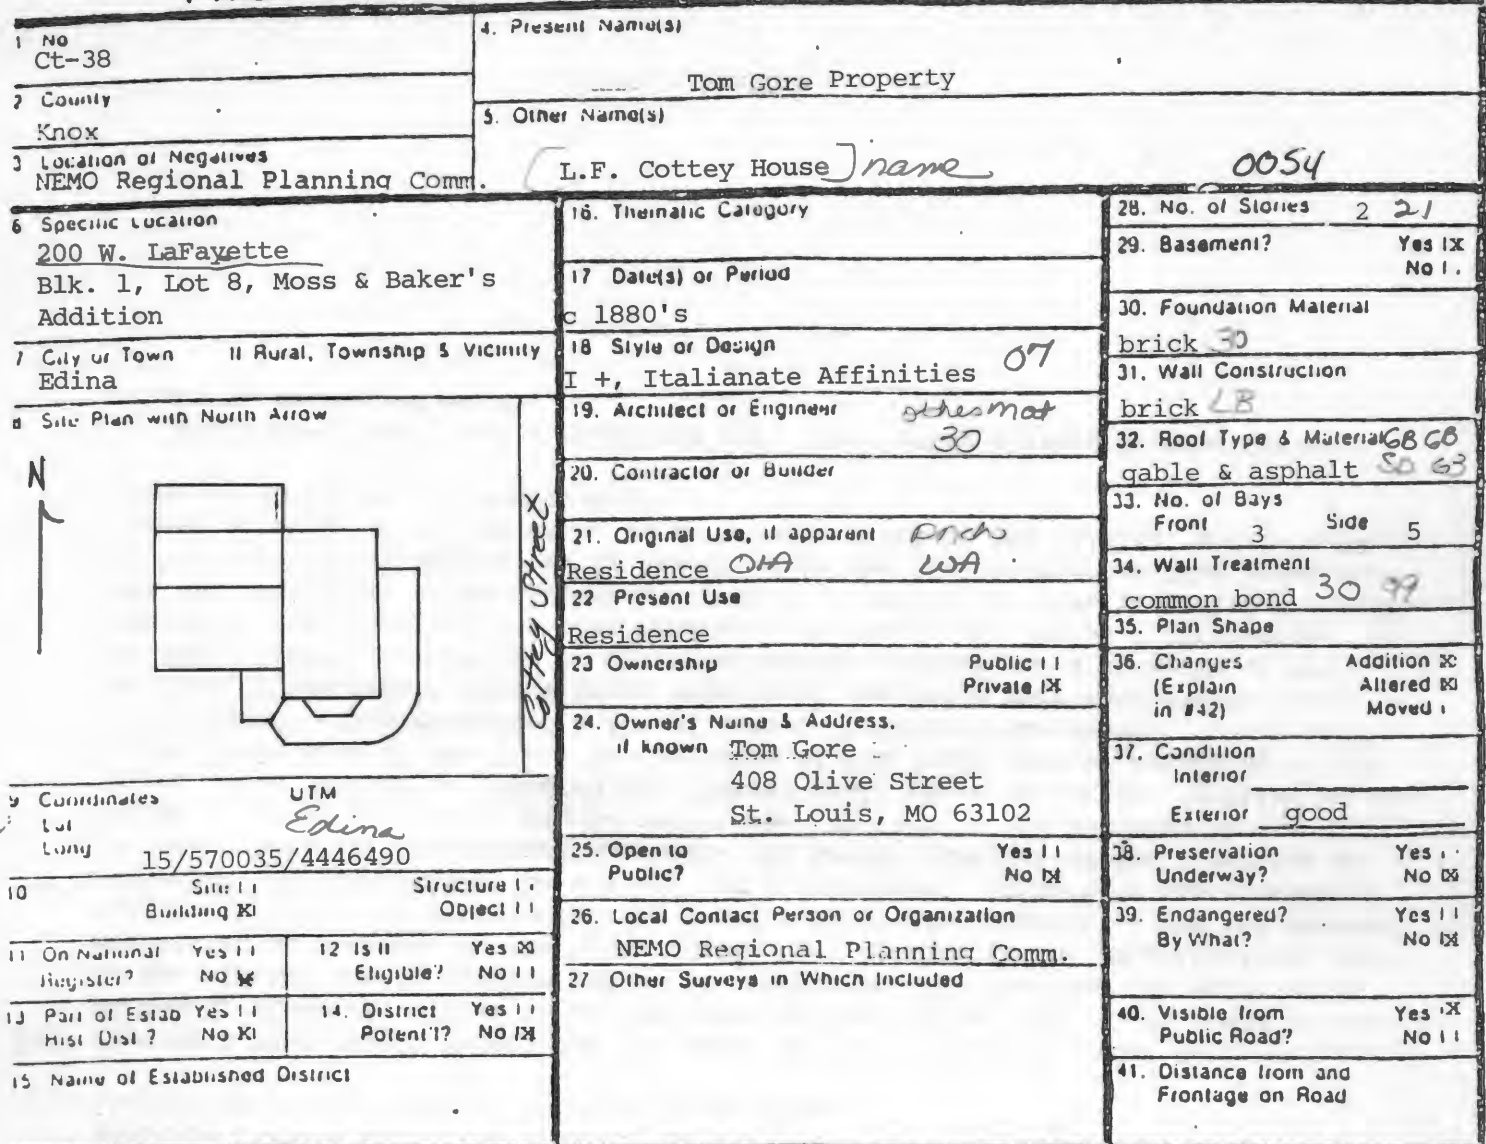 1 No
Ct-38
2 County
Knox
3 Location of Negatives
NEMO Regional Planning Comm.
4. Present Name(s)
Tom Gore Property
5. Other Name(s)
L.F. Cottey House name
0054
6 Specific Location
200 W. LaFayette
Blk. 1, Lot 8, Moss & Baker's
Addition
7 City or Town If Rural, Township & Vicinity
Edina
8 Site Plan with North Arrow
N
Cottey Street
9 Coordinates UTM
Lat
Long
Edina
15/570035/4446490
10 Site Structure
Building X Object
11 On National Yes
Register? No X
12 Is It Yes X
Eligible? No
13 Part of Estab Yes
Hist Dist? No X
14. District Yes
Potent'l? No X
15 Name of Established District
16. Thematic Category
17 Date(s) or Period
c 1880's
18 Style or Design 07
I +, Italianate Affinities
19. Architect or Engineer
30
20. Contractor or Builder
21. Original Use, if apparent
Residence 01A WA
22 Present Use
Residence
23 Ownership Public
Private X
24. Owner's Name & Address,
if known Tom Gore
408 Olive Street
St. Louis, MO 63102
25. Open to Yes
Public? No X
26. Local Contact Person or Organization
NEMO Regional Planning Comm.
27 Other Surveys in Which Included
28. No. of Stories 2 21
29. Basement? Yes X
No
30. Foundation Material
brick 30
31. Wall Construction
brick LB
32. Roof Type & Material GB GB
gable & asphalt SD 63
33. No. of Bays
Front 3 Side 5
34. Wall Treatment
common bond 30 99
35. Plan Shape
36. Changes Addition X
(Explain Altered X
in #42) Moved
37. Condition
Interior
Exterior good
38. Preservation Yes
Underway? No X
39. Endangered? Yes
By What? No X
40. Visible from Yes X
Public Road? No
41. Distance from and
Frontage on Road